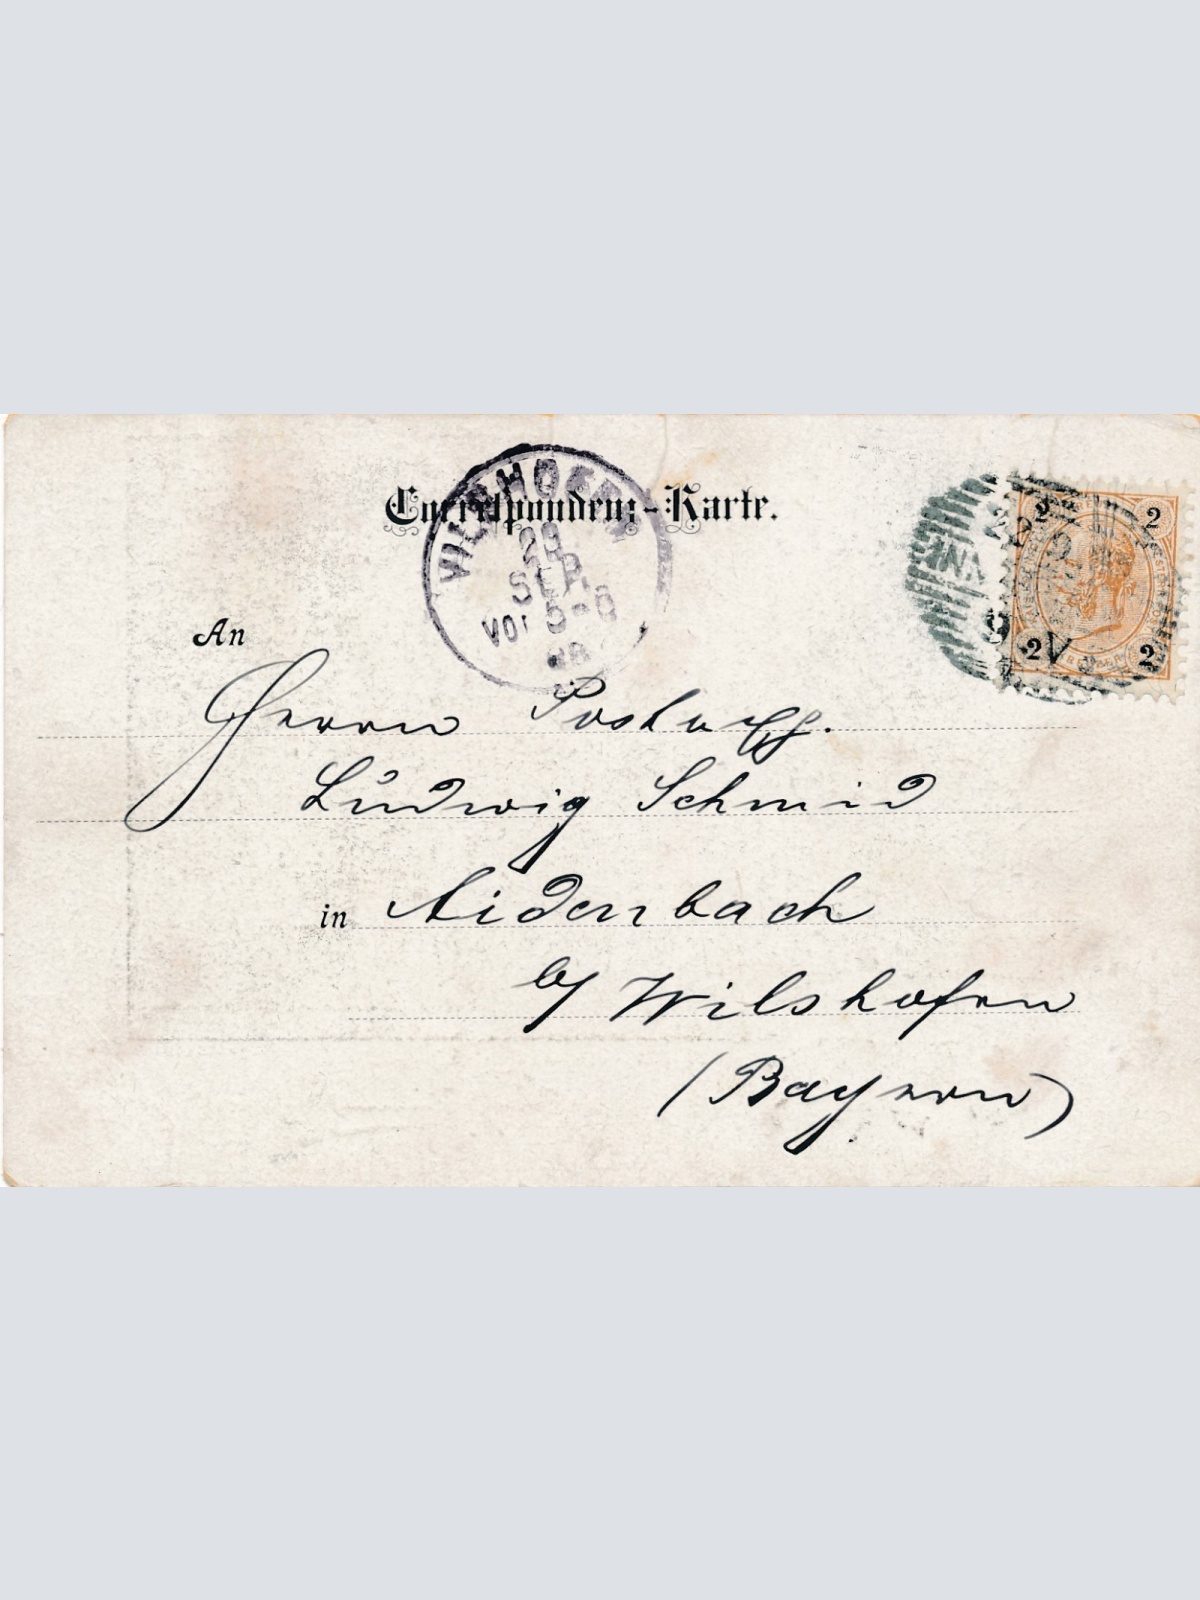 Correspondenz-Karte.
VILSHOFEN
28
SEP.
VOR 5-8
98
2 2
2 2
An
Herrn Postadj.
Ludwig Schmid
in Aidenbach
b/ Vilshofen
(Bayern)